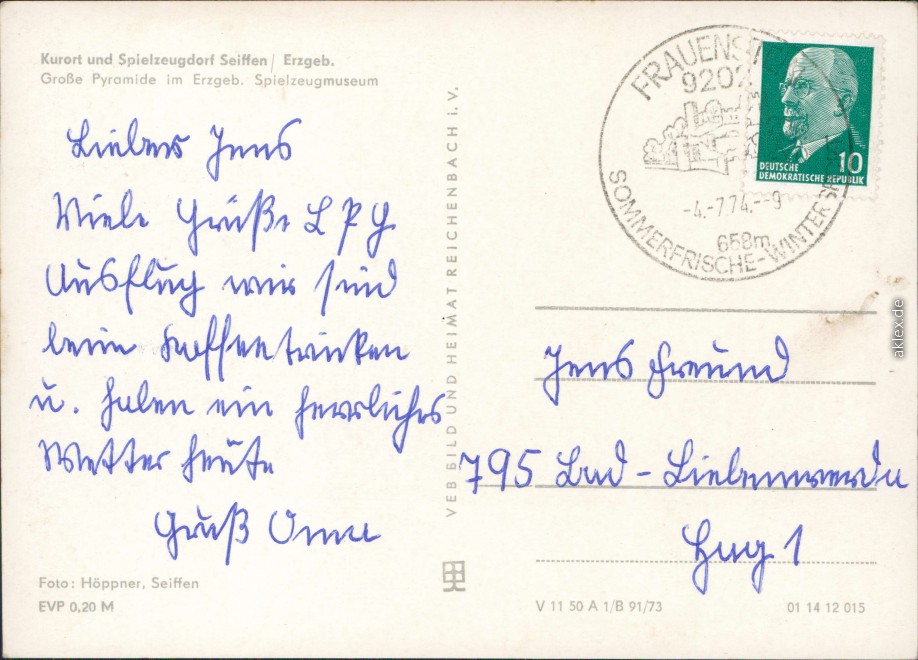 Kurort und Spielzeugdorf Seiffen / Erzgeb.
Große Pyramide im Erzgeb. Spielzeugmuseum
Lieber Jens
Viele Grüße L P G
Ausflug wir sind
beim Kaffeetrinken
u. haben ein herrliches
Wetter heute
Gruß Oma
Foto: Höppner, Seiffen
EVP 0,20 M
VEB BILD UND HEIMAT REICHENBACH i. V.
FRAUENST
9202
-4.-7.74.--9
658m
SOMMERFRISCHE-WINTERSP
10
DEUTSCHE
DEMOKRATISCHE REPUBLIK
Jens Freund
795 Bad-Liebenwerda
Hag 1
V 11 50 A 1/B 91/73
01 14 12 015
aklex.de